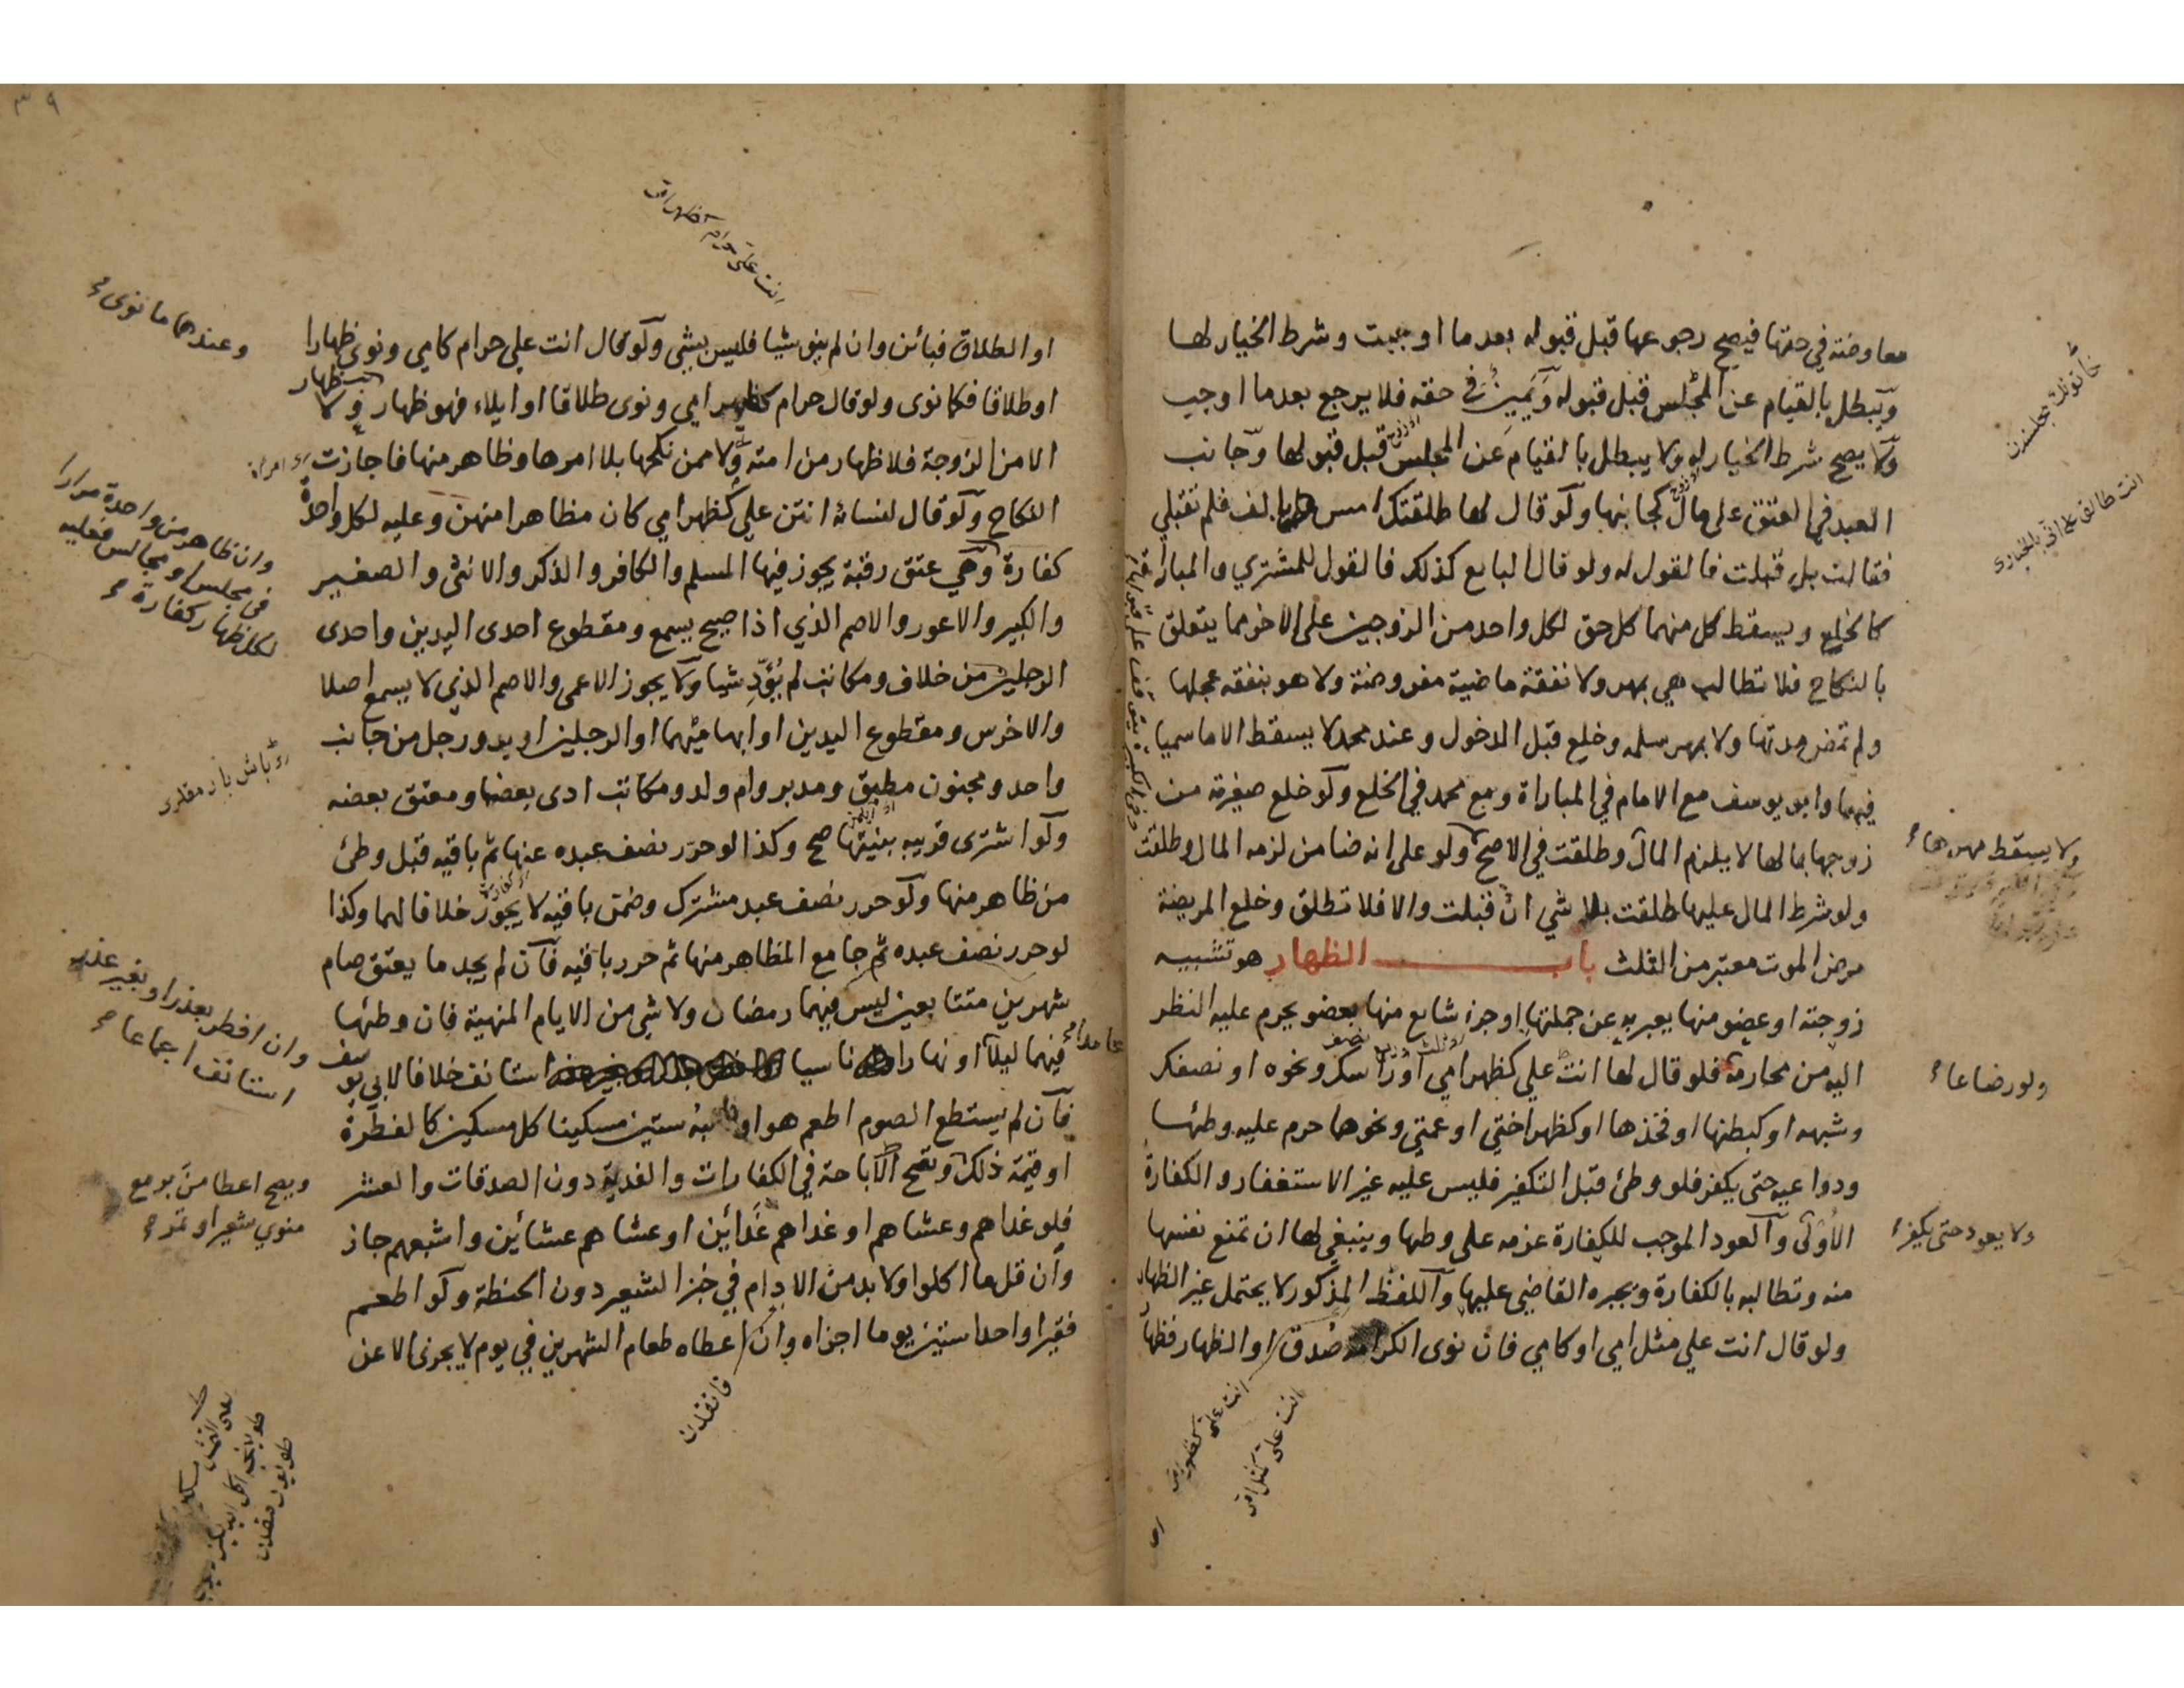 معاوضة في حقها فيصح رجوعها قبل قبوله بعد ما اوجبت وشرط الخيار لها
ويبطل بالقيام عن المجلس قبل قبوله ويمين في حقه فلا يرجع بعد ما اوجب
ولا يصح شرط الخيار له ولا يبطل بالقيام عن المجلس قبل قبولها وجانب
العبد في العتق على مال كجانبها ولو قال لها طلقتك امس بالف فلم تقبلي
فقالت بل قبلت فالقول له ولو قال البايع كذلك فالقول للمشتري والمباراة
كالخلع ويسقط كل منهما كل حق لكل واحد من الزوجين على الاخر مما يتعلق
بالنكاح فلا تطالب هي بمهر ولا نفقة ماضية مفروضة ولا هو بنفقة عجلها
ولم تمض مدتها ولا بمهر سلمه وخلع قبل الدخول وعند محمد لا يسقط الا ما سميا
فيهما وابو يوسف مع الامام في المباراة ومع محمد في الخلع ولو خلع صغيرته من
زوجها بمالها لا يلزم المال وطلقت في الاصح ولو على انه ضامن لزمه المال وطلقت
ولو شرط المال عليها طلقت بلا شي ان قبلت والا فلا تطلق وخلع المريضة
مرض الموت معتبر من الثلث باب الظهار هو تشبيه
زوجته او عضو منها يعبر به عن جملتها او جزء شايع منها بعضو يحرم عليه النظر
اليه من محارمه فلو قال لها انت علي كظهر امي او راسك ونحوه او نصفك
وشبهه او كبطنها او فخذها او كظهر اختي او عمتي ونحوها حرم عليه وطئها
ودواعيه حتى يكفر فلو وطئ قبل التكفير فليس عليه غير الاستغفار والكفارة
الاولى والعود الموجب للكفارة عزمه على وطئها وينبغي لها ان تمنع نفسها
منه وتطالبه بالكفارة ويجبره القاضي عليها واللفظ المذكور لا يحتمل غير الظهار
ولو قال انت علي مثل امي او كامي فان نوى الكرامة صدق او الظهار فظهار
انت طالق على اني بالخيارى
ولا يسقط مهرها
ولو رضاعا
ولا يعود حتى يكفر
انت علي كظهر امي
انت علي كمثل امي
٣٩
انت علي حرام كظهر امي
او الطلاق فبائن وان لم ينو شيا فليس بشي ولو قال انت علي حرام كامي ونوى ظهارا
او طلاقا فكما نوى ولو قال حرام كظهر امي ونوى طلاقا او ايلاء فهو ظهار ولا ظهار
الا من الزوجة فلا ظهار من امته ولا ممن نكحها بلا امرها وظاهر منها فاجازت
النكاح ولو قال لنسائه انتن علي كظهر امي كان مظاهرا منهن وعليه لكل واحدة
كفارة وهي عتق رقبة يجوز فيها المسلم والكافر والذكر والانثى والصغير
والكبير والاعور والاصم الذي اذا صيح يسمع ومقطوع احدى اليدين واحدى
الرجلين من خلاف ومكاتب لم يؤد شيا ولا يجوز الاعمى والاصم الذي لا يسمع اصلا
والاخرس ومقطوع اليدين او ابهاميهما او الرجلين او يد ورجل من جانب
واحد ومجنون مطبق ومدبر وام ولد ومكاتب ادى بعضا ومعتق بعضه
ولو اشترى قريبه بنيتها صح وكذا لو حرر نصف عبده عنها ثم باقيه قبل وطئ
من ظاهر منها ولو حرر نصف عبد مشترك وضمن باقيه لا يجوز خلافا لهما وكذا
لو حرر نصف عبده ثم جامع المظاهر منها ثم حرر باقيه فان لم يجد ما يعتق صام
شهرين متتابعين ليس فيهما رمضان ولا شي من الايام المنهية فان وطئها
فيهما ليلا او نهارا ناسيا استانف خلافا لابي يوسف
فان لم يستطع الصوم اطعم هو او نائبه ستين مسكينا كل مسكين كالفطرة
او قيمة ذلك وتصح الاباحة في الكفارات والفدية دون الصدقات والعشر
فلو غداهم وعشاهم او غداهم غدائين او عشاهم عشائين واشبعهم جاز
وان قل ما اكلوا ولا بد من الادام في خبز الشعير دون الحنطة ولو اطعم
فقيرا واحدا ستين يوما اجزاه وان اعطاه طعام الشهرين في يوم لا يجزئ الا عن
وعندهما ما نوى
وان ظاهر من واحدة مرارا
في مجلس او مجالس فعليه
لكل ظهار كفارة
عامدا
وان افطر بعذر او بغير عذر
استانف اجماعا
ويصح اعطا من بر مع
منوي شعير او تمر